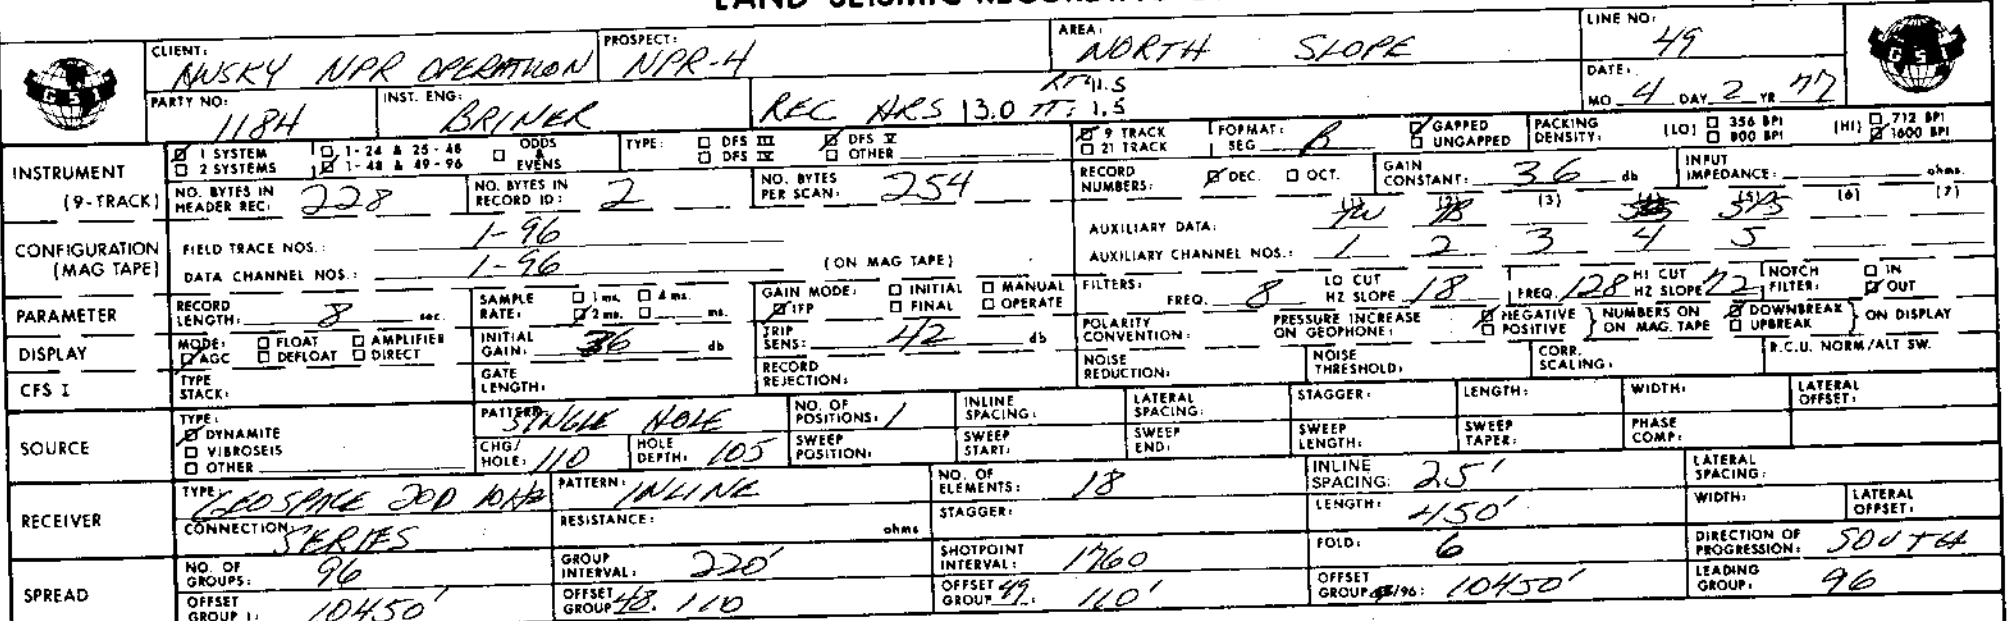 LAND SEISMIC
CLIENT: HUSKY NPR OPERATION PROSPECT: NPR-4 AREA: NORTH SLOPE LINE NO: 49
GSI
PARTY NO: 1184 INST. ENG: BRINER REC HRS 13.0 TT: 1.5 DATE: MO 4 DAY 2 YR 77
INSTRUMENT (9-TRACK) 1 SYSTEM 2 SYSTEMS 1-24 & 25-48 1-48 & 49-96 ODDS & EVENS TYPE: DFS III DFS IV DFS V OTHER 9 TRACK 21 TRACK FORMAT: SEG B GAPPED UNGAPPED PACKING DENSITY: (LO) 356 BPI 800 BPI (HI) 712 BPI 1600 BPI
NO. BYTES IN HEADER REC: 228 NO. BYTES IN RECORD ID: 2 NO. BYTES PER SCAN: 254 RECORD NUMBERS: DEC. OCT. GAIN CONSTANT: 36 db INPUT IMPEDANCE: ohms.
CONFIGURATION (MAG TAPE) FIELD TRACE NOS.: 1-96 AUXILIARY DATA: (1) (2) TB (3) (5) (6) (7)
DATA CHANNEL NOS.: 1-96 (ON MAG TAPE) AUXILIARY CHANNEL NOS.: 1 2 3 4 5
PARAMETER RECORD LENGTH: 8 sec. SAMPLE RATE: 1 ms. 4 ms. 2 ms. ms. GAIN MODE: INITIAL MANUAL IFP FINAL OPERATE FILTERS: FREQ. 8 LO CUT HZ SLOPE 18 FREQ. 128 HI CUT HZ SLOPE 72 NOTCH FILTER: IN OUT
DISPLAY MODE: FLOAT AMPLIFIER AGC DEFLOAT DIRECT INITIAL GAIN: 36 db TRIP SENS: 42 db POLARITY CONVENTION: PRESSURE INCREASE ON GEOPHONE: NEGATIVE POSITIVE NUMBERS ON ON MAG. TAPE DOWNBREAK UPBREAK ON DISPLAY
CFS I TYPE STACK: GATE LENGTH: RECORD REJECTION: NOISE REDUCTION: NOISE THRESHOLD: CORR. SCALING: R.C.U. NORM/ALT SW.
SOURCE TYPE: DYNAMITE VIBROSEIS OTHER PATTERN: SINGLE HOLE NO. OF POSITIONS: 1 INLINE SPACING: LATERAL SPACING: STAGGER: LENGTH: WIDTH: LATERAL OFFSET:
CHG/HOLE: 110 HOLE DEPTH: 105 SWEEP POSITION: SWEEP START: SWEEP END: SWEEP LENGTH: SWEEP TAPER: PHASE COMP:
RECEIVER TYPE: GEOSPACE 20D 10Hz PATTERN: INLINE NO. OF ELEMENTS: 18 INLINE SPACING: 25' LATERAL SPACING:
CONNECTION: SERIES RESISTANCE: ohms STAGGER: LENGTH: 450' WIDTH: LATERAL OFFSET:
SPREAD NO. OF GROUPS: 96 GROUP INTERVAL: 220' SHOTPOINT INTERVAL: 1760 FOLD: 6 DIRECTION OF PROGRESSION: SOUTH
OFFSET GROUP 1: 10450' OFFSET GROUP 48: 110 OFFSET GROUP 49: 110' OFFSET GROUP /96: 10450' LEADING GROUP: 96